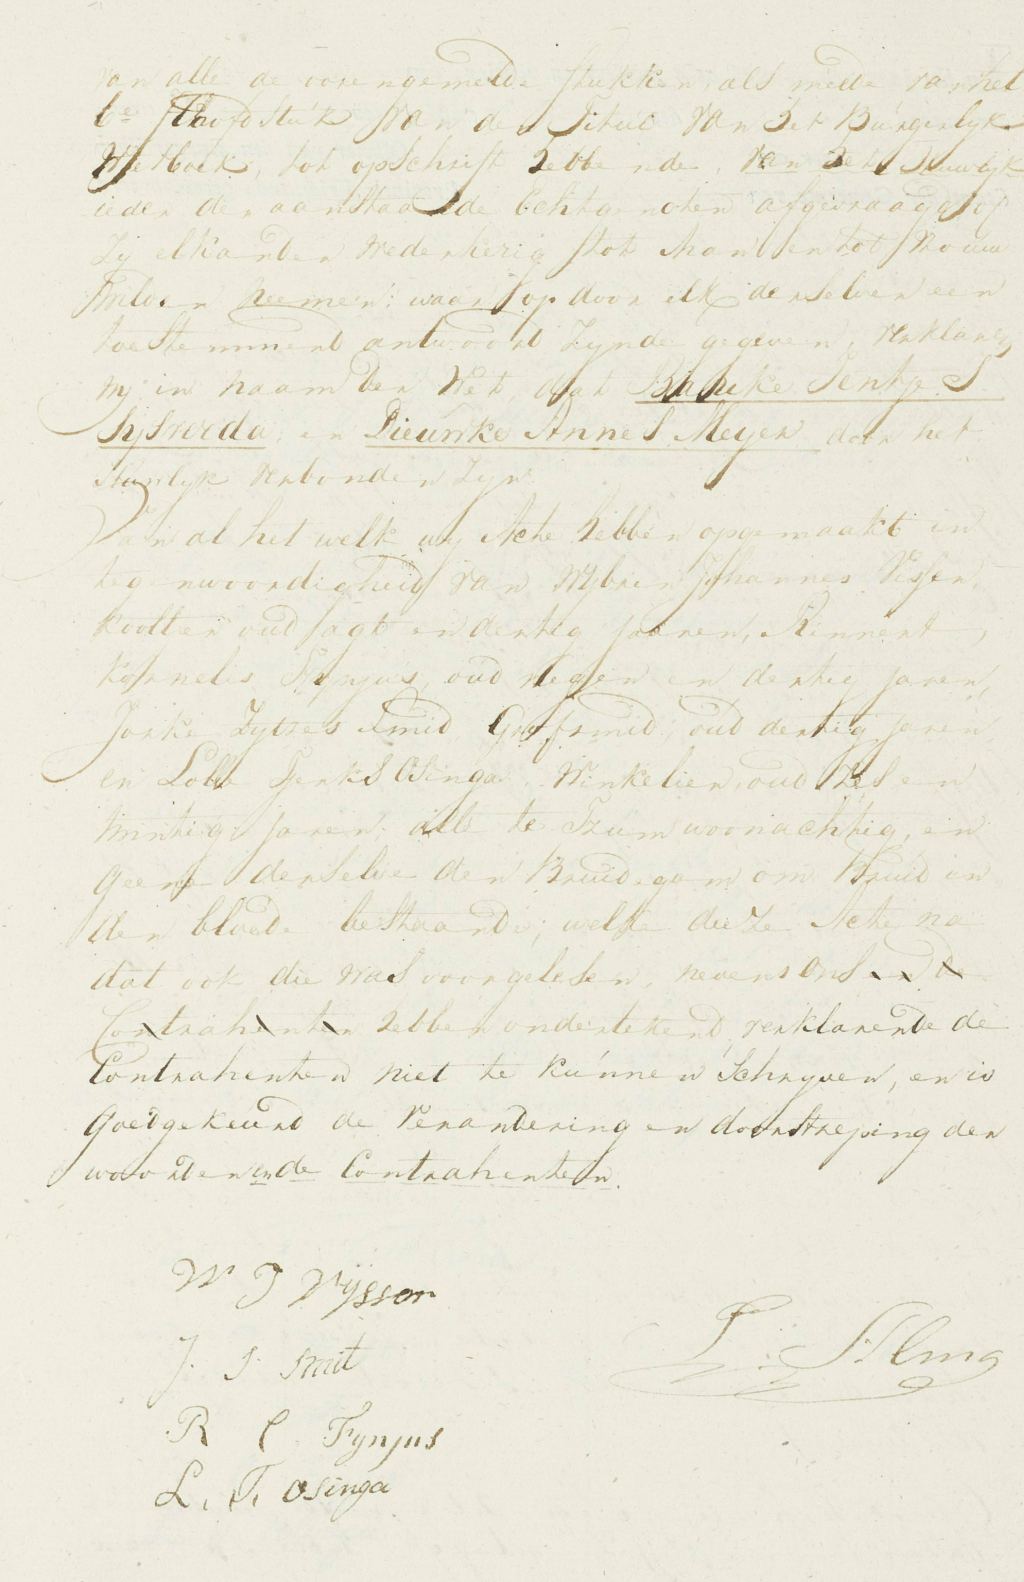 van alle de vorengemelde stukken, als mede van het
6e Hoofdstuk van den Titul van het Burgerlyk
Wetboek, tot opschrift hebbende, van het Huwlyk
ieder der aanstaande Echtgenoten afgevraagd of
zy elkander wederkerig tot Man en tot Vrouw
willen neemen: waar op door elk derselver een
toestemmend antwoord zynde gegeven, verklaren
wy in naam der Wet dat Bauke Sentjes
Sysverda en Dieuwke Annes Meyer door het
Huwlyk verbonden zyn.
Van al het welk wy Acte hebben opgemaakt in
tegenwoordigheid van Wybren Johannes Visser,
kooltjer oud agt en dertig jaaren, Rinnert
Kornelis Fynjus, oud negen en dertig jaren,
Jorke Zytzes Smid Grofsmid, oud dertig jaren
en Lolle Tjerks Osinga. Winkelier, oud zes en
twintig jaren, alle te Tzum woonachtig, en
geene derselve den Bruidegom om Bruid in
den bloede bestaande; welke deeze Acte na
dat ook die was voorgelesen, nevens ons en de
Contrahenten hebben ondertekend, verklarende de
Contrahenten niet te kúnnen Schryven, en is
goedgekeúrd de verandering en doorstreping der
woorden en de Contrahenten.
W J Vijsser
J. S. Smit
R C Fynjus
L. T. Osinga